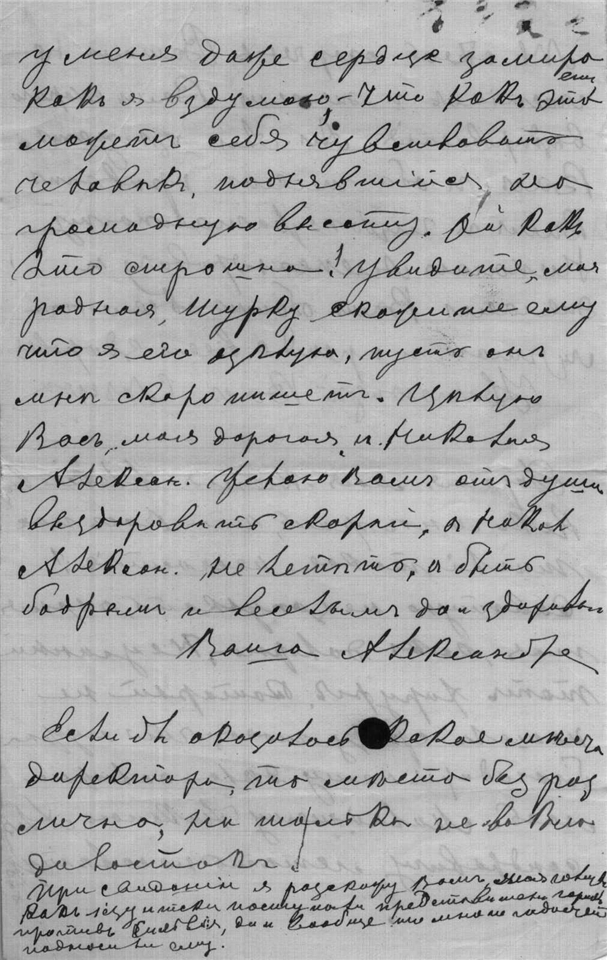 у меня даже сердце замирает
какъ я вздумаю – что какъ это
можетъ себя чувствовать
человѣкъ, поднявшійся на
громадную высоту. Ой какъ
это страшно! Увидите, моя
родная, Шурку скажите ему
что я его цѣлую, пусть онъ
мнѣ скоро пишетъ. Цѣлую
Васъ, моя дорогая, и Николая
Алексан. Желаю Вамъ отъ души
выздоровѣть скорѣй, а Никол
Алексан. не
бодрымъ и веселымъ да и здоровы
Ваша Александра
Если бъ оказалось какое мѣсто
директора, то мѣсто без раз
лично, но только не во Вла
дивостокъ.
При свиданіи я разскажу Вамъ
какъ іезуитски поступали представители города
противъ да и вообще то много гадостей
подносили ему.